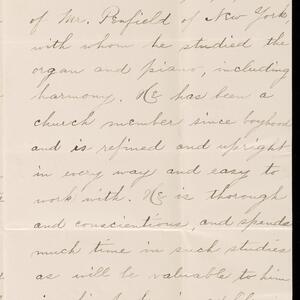 of Mr. Penfield of New York,
with whom he studied the
organ and piano, including
harmony. He has been a
church member since boyhood
and is refined and upright
in every way and easy to
work with. He is thorough
and conscientious, and spends
much time in such studies
as will be valuable to him